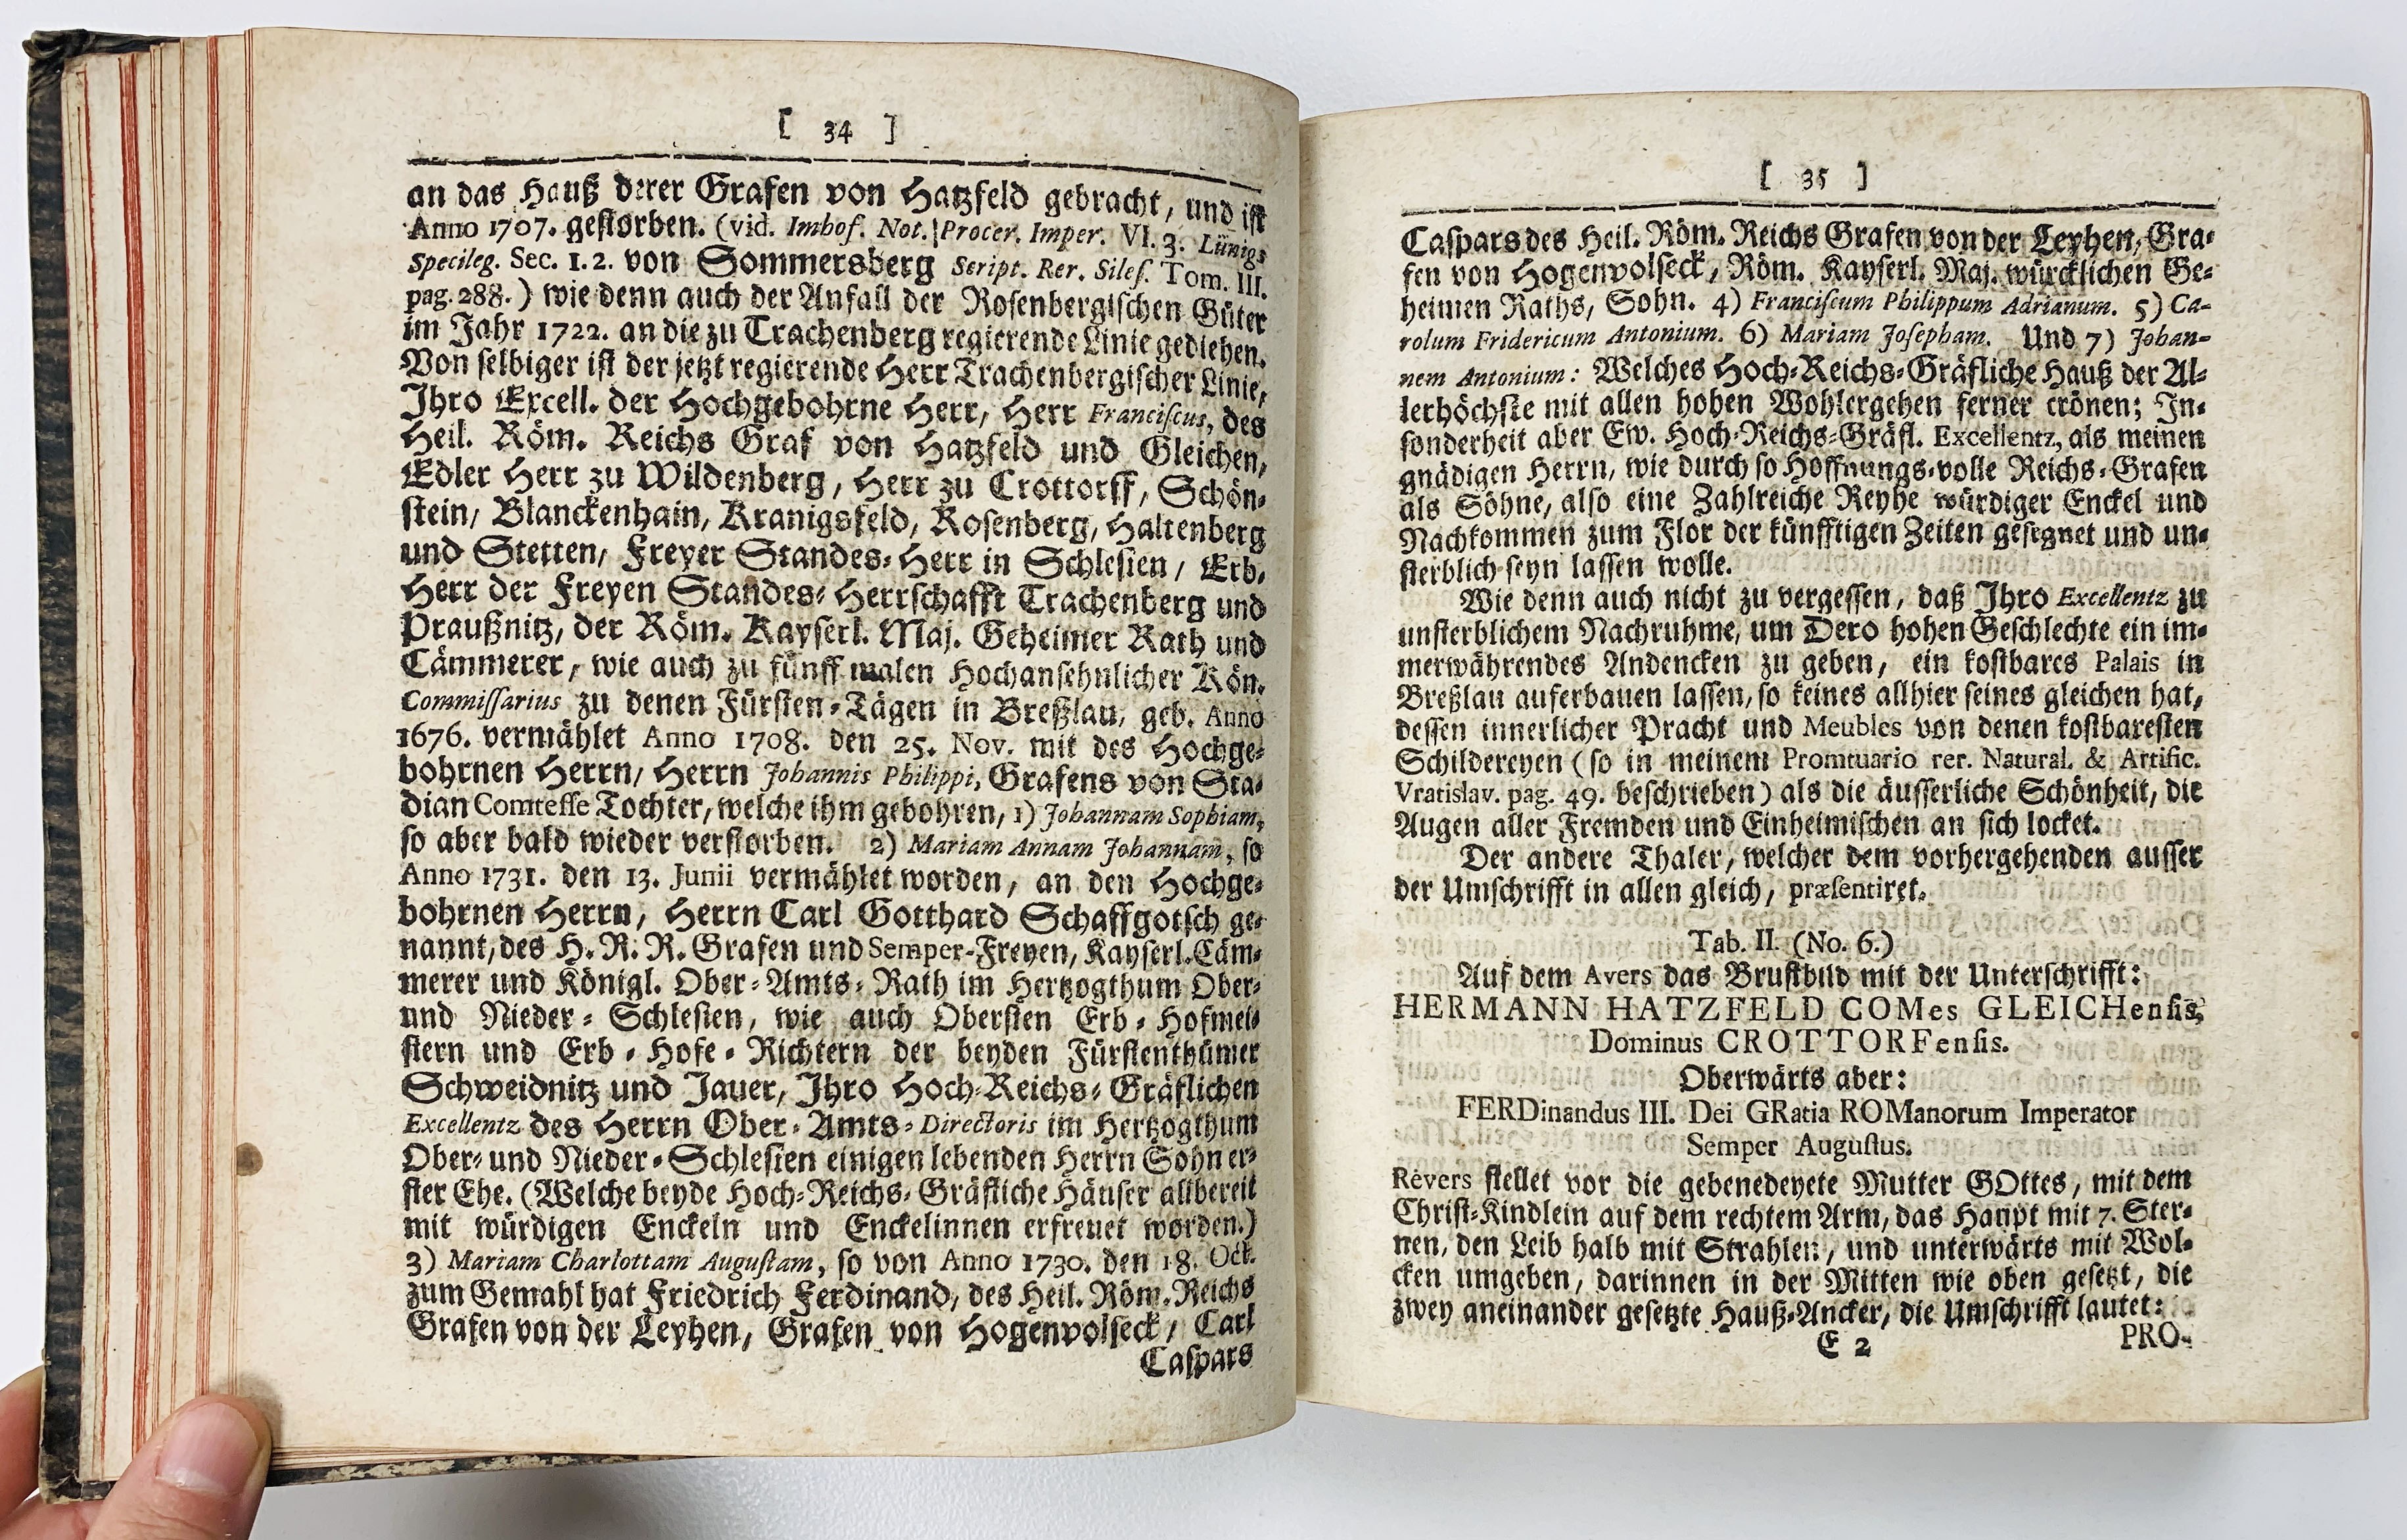 [ 34 ]
an das Hauß derer Grafen von Hatzfeld gebracht, und ist
Anno 1707. gestorben. (vid. Imhof. Not. Procer. Imper. VI. 3. Lünigs
Specileg. Sec. I. 2. von Sommersberg Script. Rer. Siles. Tom. III.
pag. 288.) wie denn auch der Anfall der Rosenbergischen Güter
im Jahr 1722. an die zu Trachenberg regierende Linie gediehen.
Von selbiger ist der jetzt regierende Herr Trachenbergischer Linie,
Ihro Excell. der Hochgebohrne Herr, Herr Franciscus, des
Heil. Röm. Reichs Graf von Hatzfeld und Gleichen,
Edler Herr zu Wildenberg, Herr zu Crottorff, Schön-
stein, Blanckenhain, Kranigsfeld, Rosenberg, Haltenberg
und Stetten, Freyer Standes-Herr in Schlesien, Erb-
Herr der Freyen Standes-Herrschafft Trachenberg und
Praußnitz, der Röm. Kayserl. Maj. Geheimer Rath und
Cämmerer, wie auch zu fünff malen Hochansehnlicher Kön.
Commissarius zu denen Fürsten-Tägen in Breßlau, geb. Anno
1676. vermählet Anno 1708. den 25. Nov. mit des Hochge-
bohrnen Herrn, Herrn Johannis Philippi, Grafens von Sta-
dian Comtesse Tochter, welche ihm gebohren, 1) Johannam Sophiam,
so aber bald wieder verstorben. 2) Mariam Annam Johannam, so
Anno 1731. den 13. Junii vermählet worden, an den Hochge-
bohrnen Herrn, Herrn Carl Gotthard Schaffgotsch ge-
nannt, des H. R. R. Grafen und Semper-Freyen, Kayserl. Cäm-
merer und Königl. Ober-Amts-Rath im Hertzogthum Ober-
und Nieder-Schlesien, wie auch Obersten Erb-Hofmei-
stern und Erb-Hofe-Richtern der beyden Fürstenthümer
Schweidnitz und Jauer, Ihro Hoch-Reichs-Gräflichen
Excellentz des Herrn Ober-Amts-Directoris im Hertzogthum
Ober- und Nieder-Schlesien einigen lebenden Herrn Sohn er-
ster Ehe. (Welche beyde Hoch-Reichs-Gräfliche Häuser allbereit
mit würdigen Enckeln und Enckelinnen erfreuet worden.)
3) Mariam Charlottam Augustam, so von Anno 1730. den 18. Oct.
zum Gemahl hat Friedrich Ferdinand, des Heil. Röm. Reichs
Grafen von der Leyhen, Grafen von Hogenvolseck, Carl
Caspars
[ 35 ]
Caspars des Heil. Röm. Reichs Grafen von der Leyhen, Gra-
fen von Hogenvolseck, Röm. Kayserl. Maj. würcklichen Ge-
heimen Raths, Sohn. 4) Franciscum Philippum Adrianum. 5) Ca-
rolum Fridericum Antonium. 6) Mariam Josepham. Und 7) Johan-
nem Antonium: Welches Hoch-Reichs-Gräfliche Hauß der Al-
lerhöchste mit allen hohen Wohlergehen ferner crönen; In-
sonderheit aber Ew. Hoch-Reichs-Gräfl. Excellentz, als meinen
gnädigen Herrn, wie durch so Hoffnungs-volle Reichs-Grafen
als Söhne, also eine Zahlreiche Reyhe würdiger Enckel und
Nachkommen zum Flor der künfftigen Zeiten gesegnet und un-
sterblich seyn lassen wolle.
Wie denn auch nicht zu vergessen, daß Ihro Excellentz zu
unsterblichem Nachruhme, um Dero hohen Geschlechte ein im-
merwährendes Andencken zu geben, ein kostbares Palais in
Breßlau auferbauen lassen, so keines allhier seines gleichen hat,
dessen innerlicher Pracht und Meubles von denen kostbaresten
Schildereyen (so in meinem Promtuario rer. Natural. & Artific.
Vratislav. pag. 49. beschrieben) als die äusserliche Schönheit, die
Augen aller Fremden und Einheimischen an sich locket.
Der andere Thaler, welcher dem vorhergehenden ausser
der Umschrifft in allen gleich, præsentiret.
Tab. II. (No. 6.)
Auf dem Avers das Brustbild mit der Unterschrifft:
HERMANN HATZFELD COMes GLEICHensis,
Dominus CROTTORFensis.
Oberwärts aber:
FERDinandus III. Dei GRatia ROManorum Imperator
Semper Augustus.
Revers stellet vor die gebenedeyete Mutter GOttes, mit dem
Christ-Kindlein auf dem rechtem Arm, das Haupt mit 7. Ster-
nen, den Leib halb mit Strahlen, und unterwärts mit Wol-
cken umgeben, darinnen in der Mitten wie oben gesetzt, die
zwey aneinander gesetzte Hauß-Ancker, die Umschrifft lautet:
E 2 PRO-